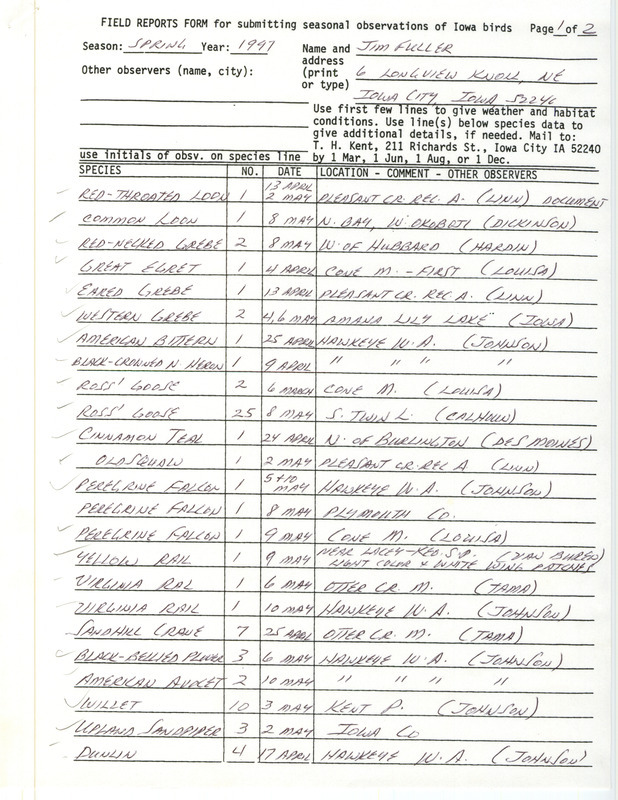 FIELD REPORTS FORM for submitting seasonal observations of Iowa birds Page 1 of 2
Season: SPRING Year: 1997 Name and JIM FULLER
address
Other observers (name, city): (print 6 LONGVIEW KNOLL, NE
or type) IOWA CITY IOWA 52240
Use first few lines to give weather and habitat
conditions. Use line(s) below species data to
give additional details, if needed. Mail to:
T. H. Kent, 211 Richards St., Iowa City IA 52240
use initials of obsv. on species line by 1 Mar, 1 Jun, 1 Aug, or 1 Dec.
SPECIES NO. DATE LOCATION - COMMENT - OTHER OBSERVERS
13 APRIL
RED-THROATED LOON 1 2 MAY PLEASANT CR. REC. A. (LINN) DOCUMENT
COMMON LOON 1 8 MAY N. BAY, W OKOBOJI (DICKINSON)
RED-NECKED GREBE 2 8 MAY W. OF HUBBARD (HARDIN)
GREAT EGRET 1 4 APRIL CONE M. - FIRST (LOUISA)
EARED GREBE 1 13 APRIL PLEASANT CR. REC. A. (LINN)
WESTERN GREBE 2 4,6 MAY AMANA LILY LAKE (IOWA)
AMERICAN BITTERN 1 25 APRIL HAWKEYE W.A. (JOHNSON)
BLACK-CROWNED N HERON 1 9 APRIL " " " "
ROSS' GOOSE 2 6 MARCH CONE M. (LOUISA)
ROSS' GOOSE 25 8 MAY S. TWIN L. (CALHOUN)
CINNAMON TEAL 1 24 APRIL N. OF BURLINGTON (DES MOINES)
OLDSQUAW 1 2 MAY PLEASANT CR. REC A (LINN)
PEREGRINE FALCON 1 5+10 MAY HAWKEYE W.A. (JOHNSON)
PEREGRINE FALCON 1 8 MAY PLYMOUTH CO.
PEREGRINE FALCON 1 9 MAY CONE M. (LOUISA)
YELLOW RAIL 1 9 MAY NEAR LACEY-KEO. S.P. (VAN BUREN)
LIGHT COLOR & WHITE WING PATCHES
VIRGINIA RAIL 1 6 MAY OTTER CR. M. (TAMA)
VIRGINIA RAIL 1 10 MAY HAWKEYE W.A. (JOHNSON)
SANDHILL CRANE 7 25 APRIL OTTER CR. M. (TAMA)
BLACK-BELLIED PLOVER 3 6 MAY HAWKEYE W.A. (JOHNSON)
AMERICAN AVOCET 2 10 MAY " " " "
WILLET 10 3 MAY KENT P. (JOHNSON)
UPLAND SANDPIPER 3 2 MAY IOWA CO
DUNLIN 4 17 APRIL HAWKEYE W.A. (JOHNSON)